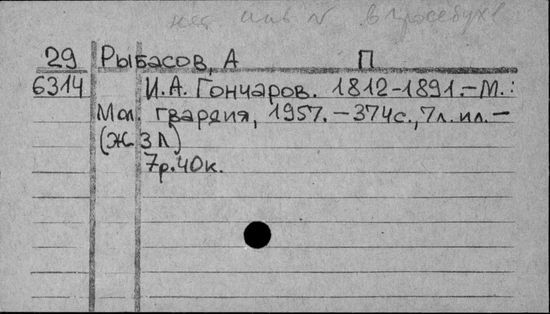 нет инв N в
29 Рыбасов, А П
6314 И.А. Гончаров. 1812-1891.-М.:
Мол. гвардия, 1957. – 374с., 7л. ил. –
(ЖЗЛ)
7р.40к.